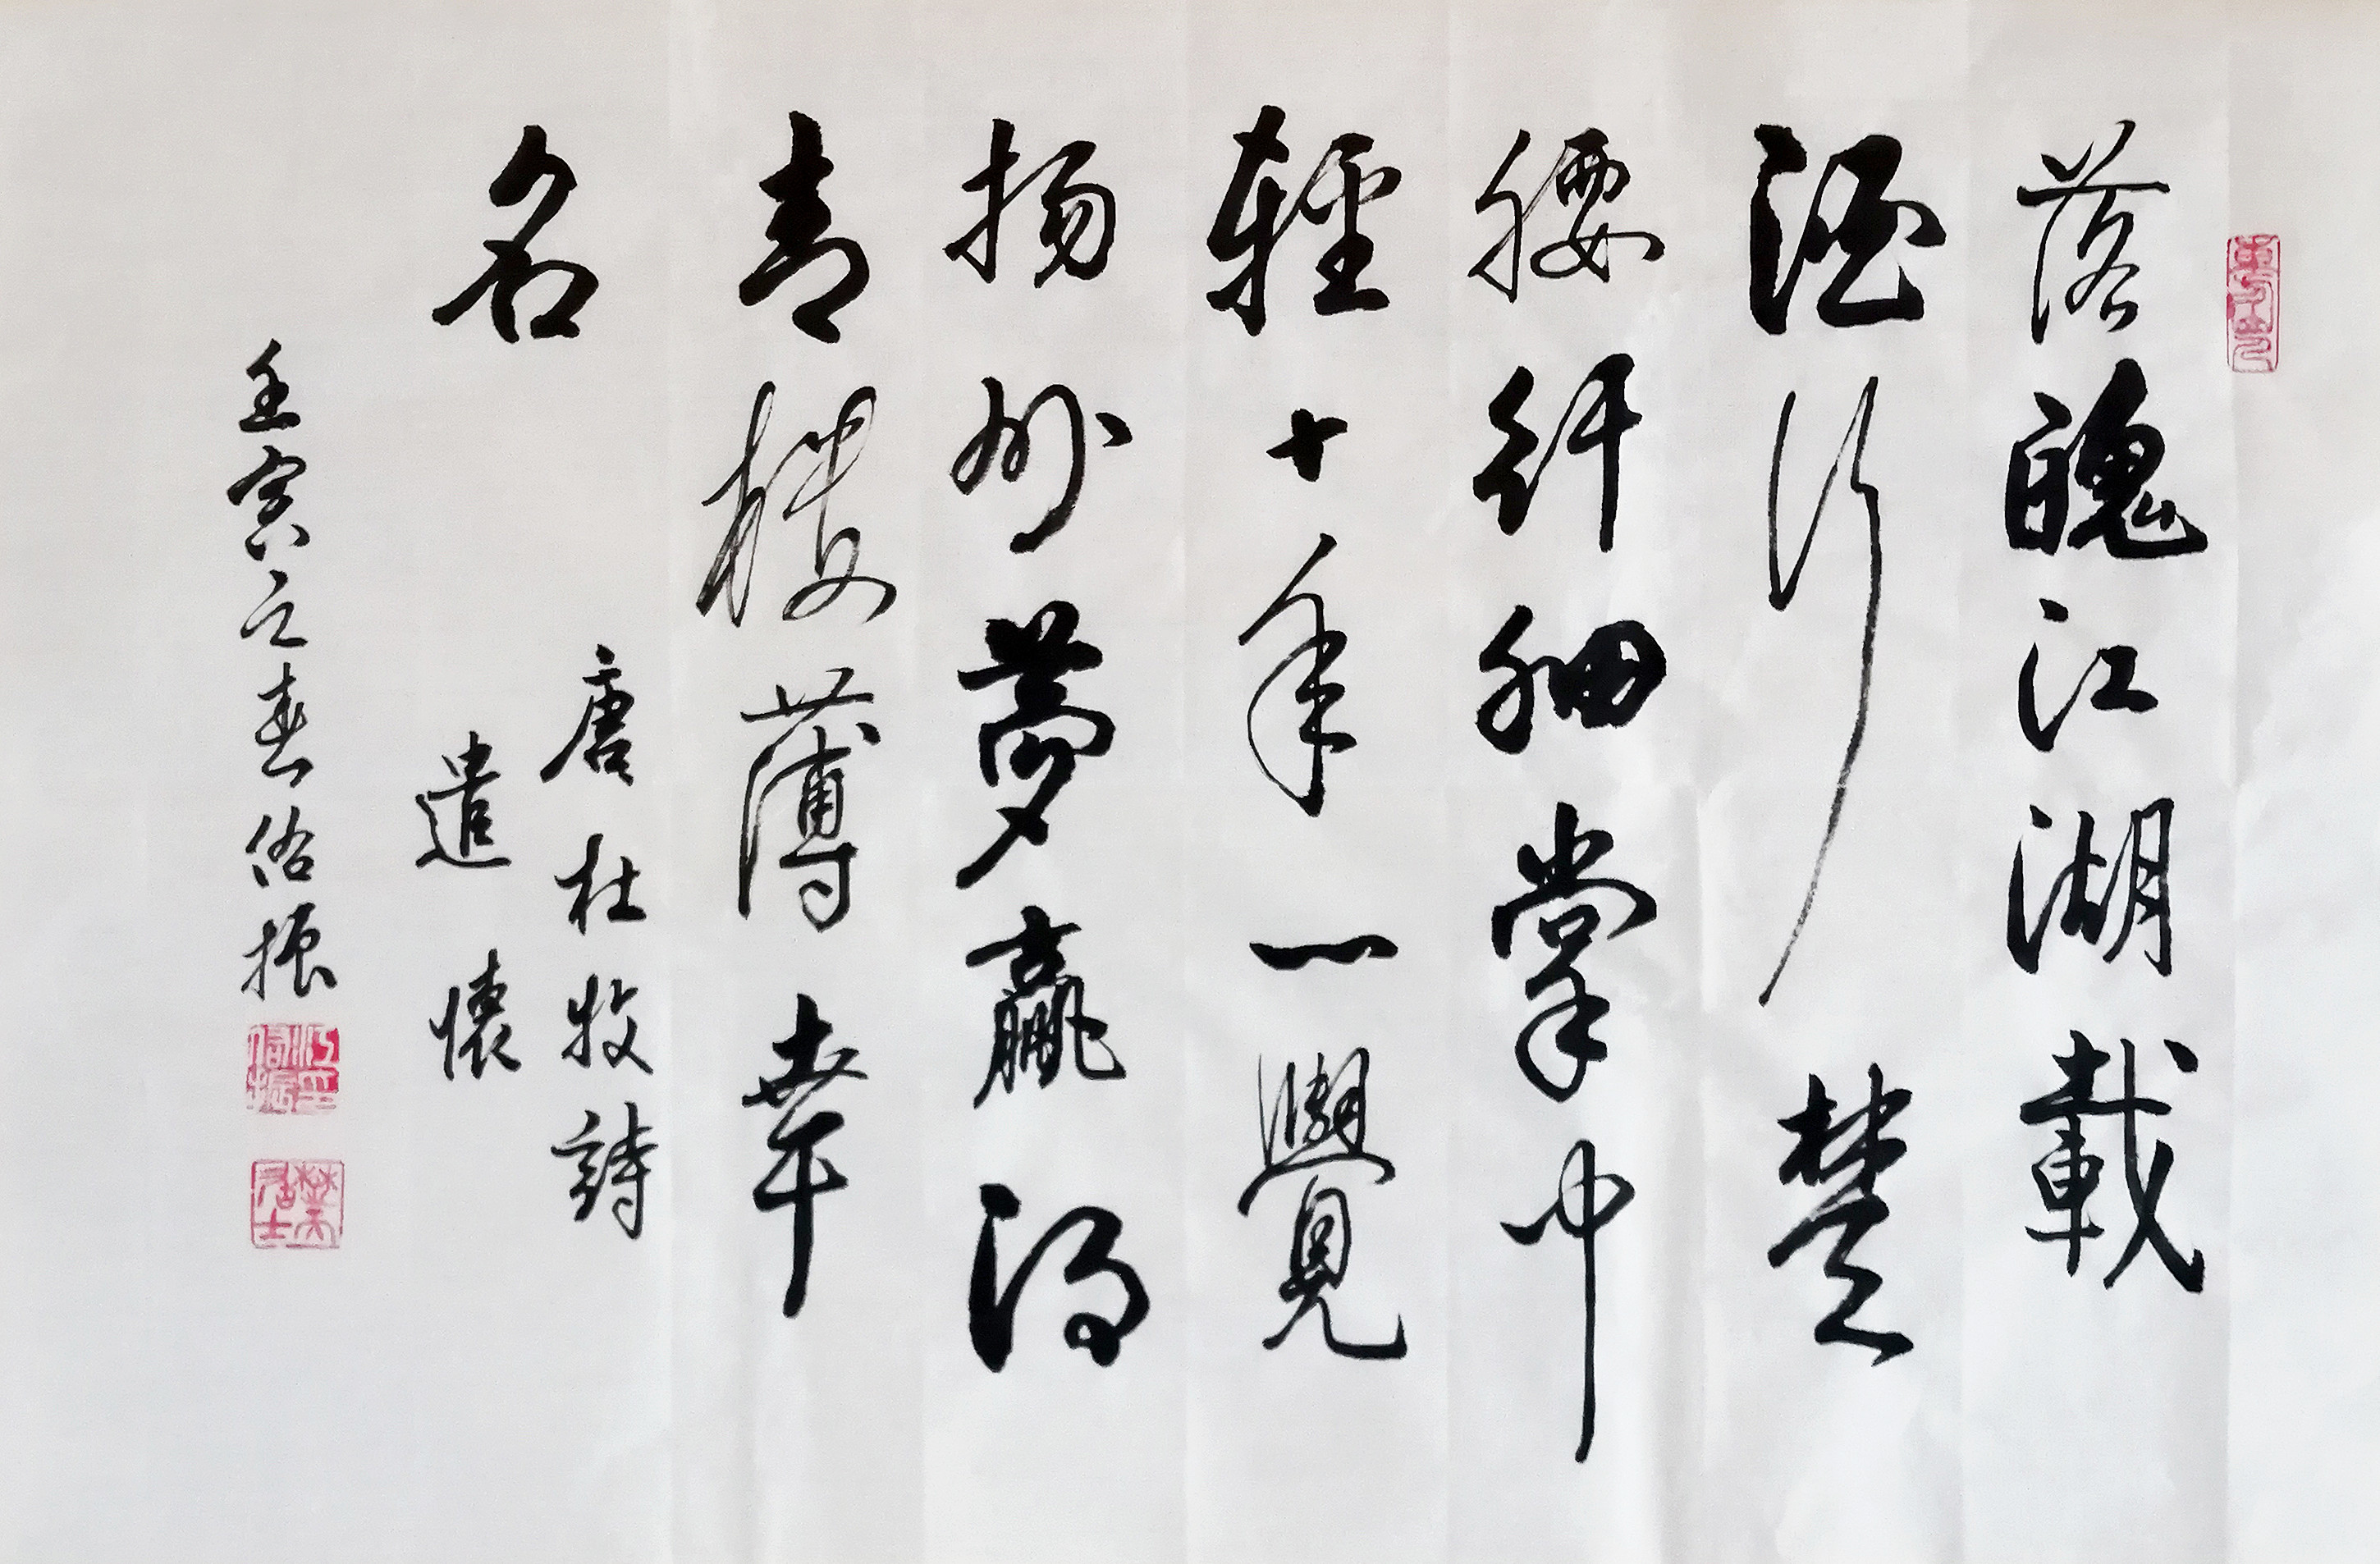 落魄江湖載
酒行楚
腰纤細掌中
輕十年一覺
揚州夢贏得
青樓薄幸
名
唐杜牧詩
遣懷
壬寅之春振